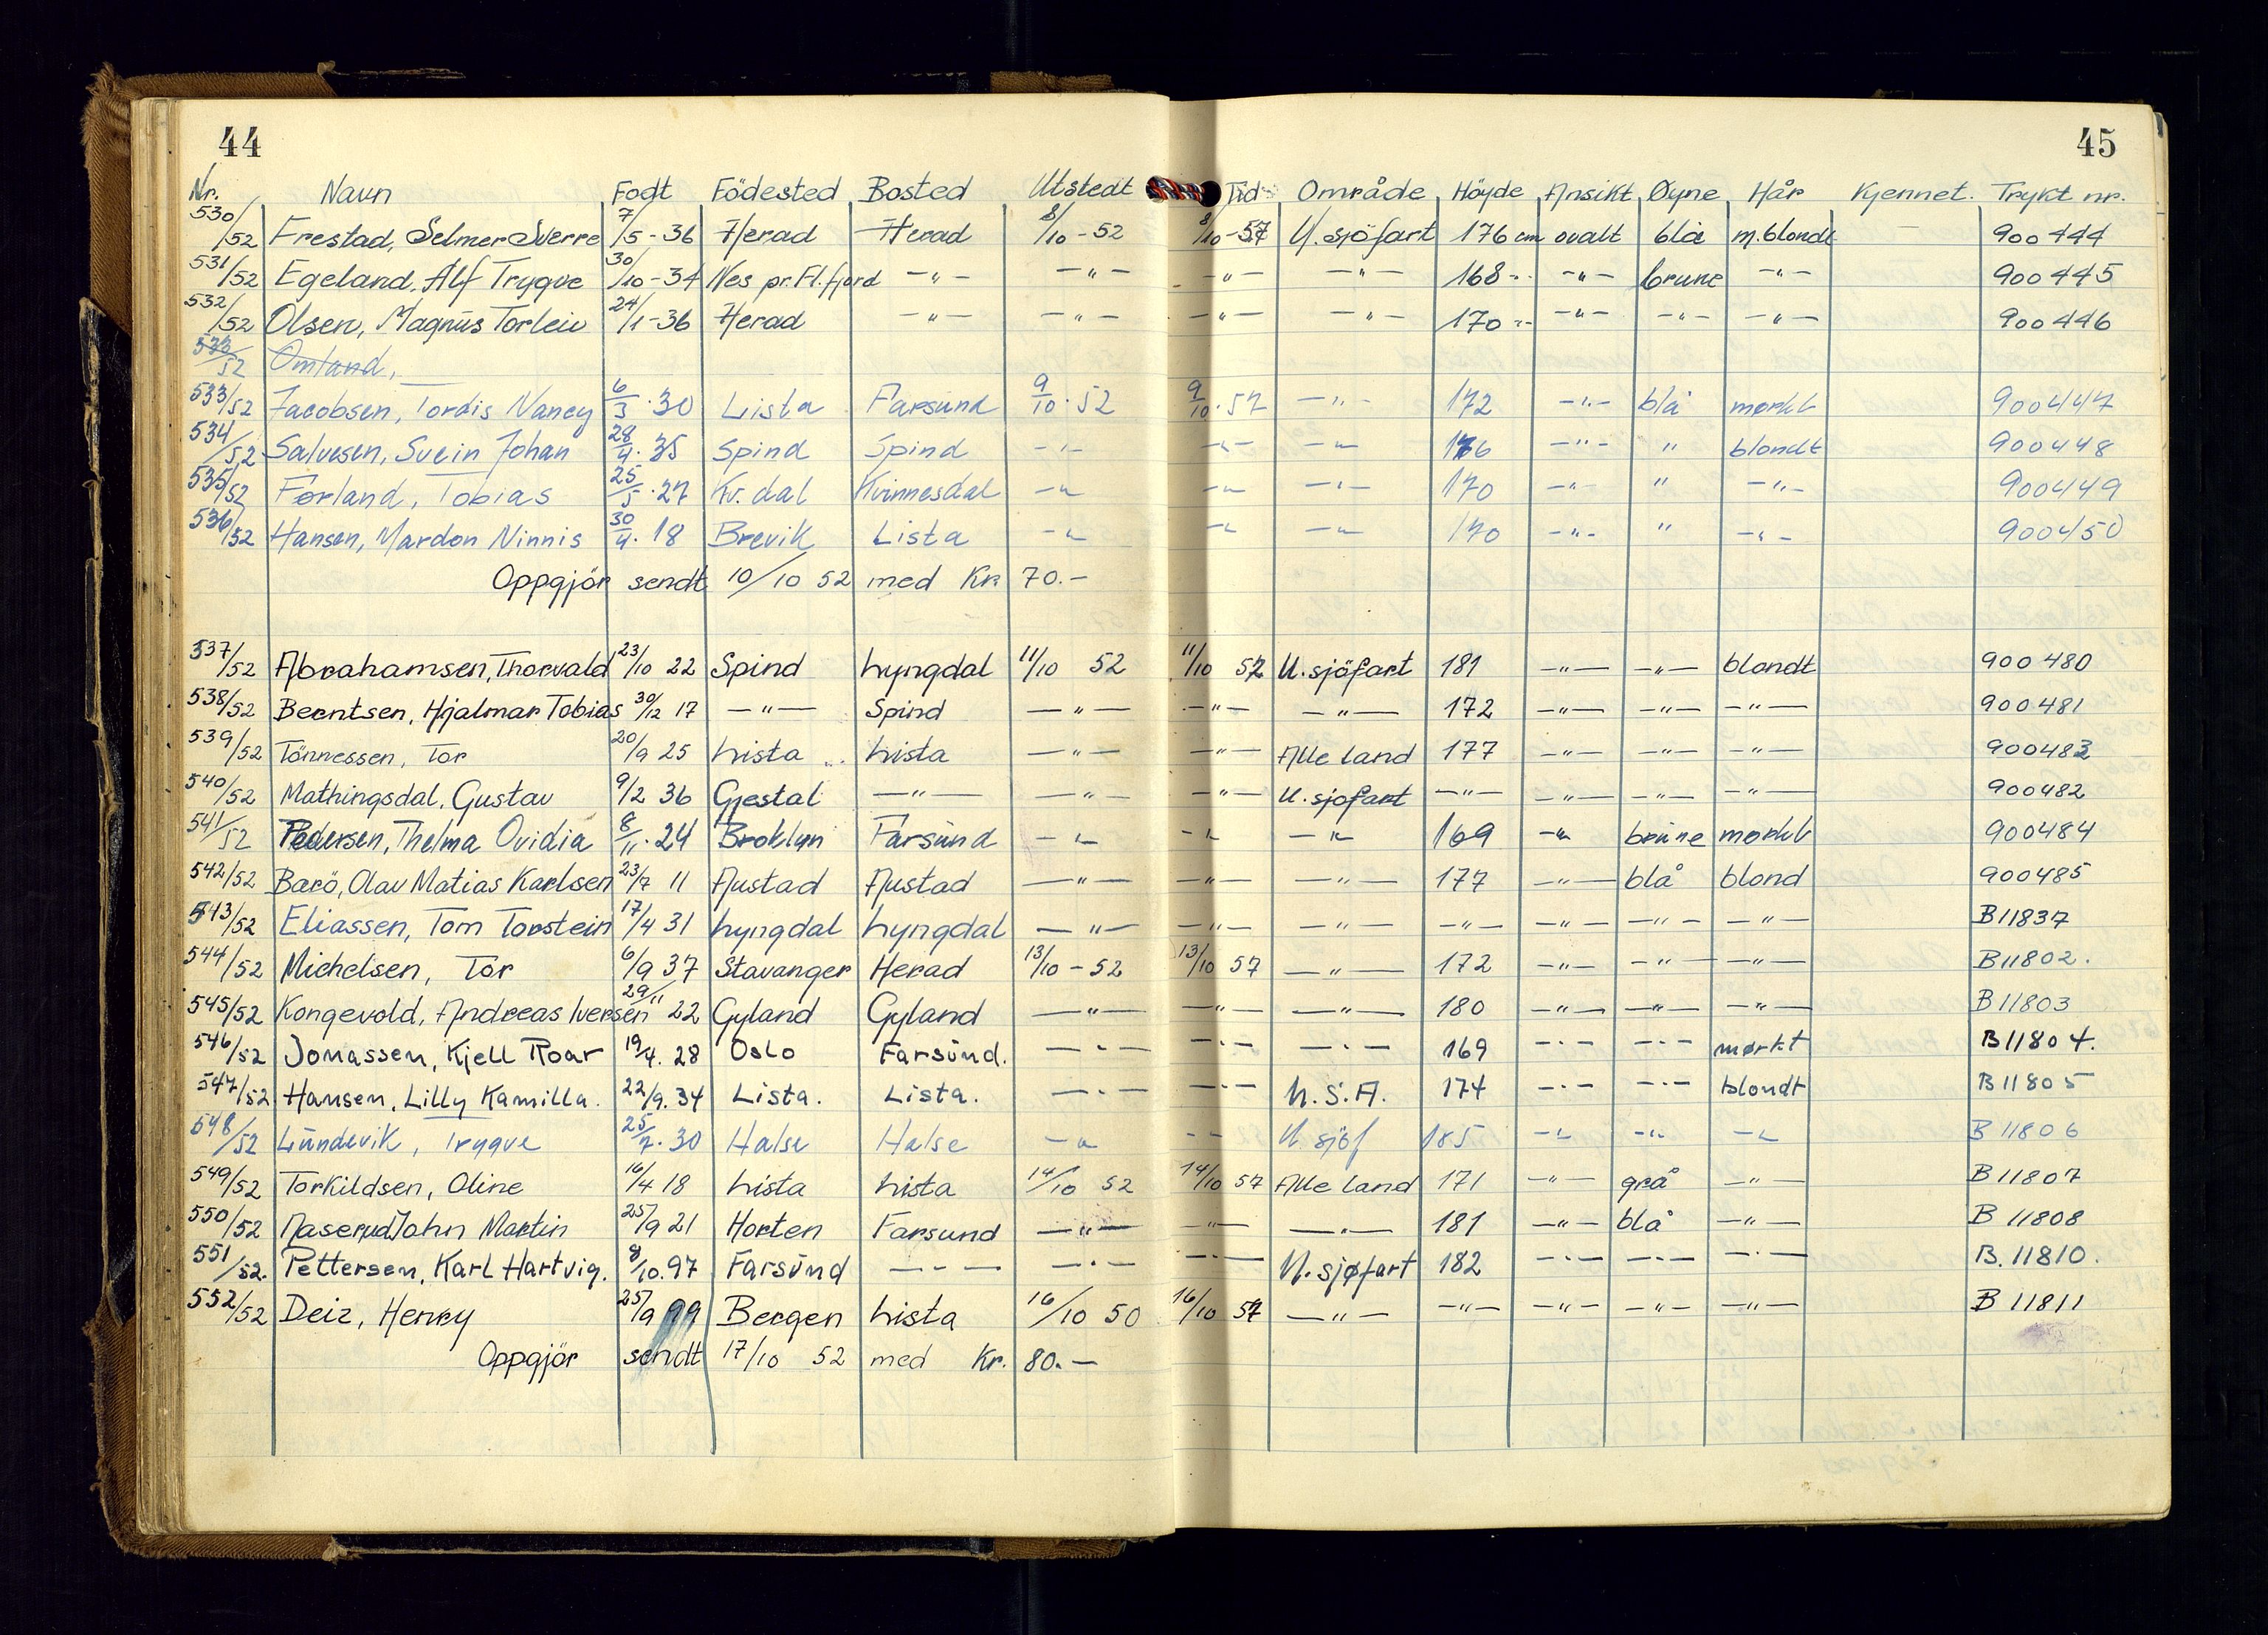 44
45
Nr. Navn Fodt Födested Bosted Utstedt Tid Område Höyde Ansikt Øyne Hår Kjennet. Trykt nr.
530/52 Frestad, Selmer Sverre 7/5-36 Herad Herad 8/10-52 8/10-57 U.sjöfart 176 cm ovalt blå m.blondt — 900444
531/52 Egeland, Alf Trygve 30/10-34 Nes pr.Fl.fjord -"- -"- -"- -"- 168 -"- -"- brune -"- 900445
532/52 Olsen, Magnus Torleiv 24/1-36 Herad -"- -"- -"- -"- 170 -"- -"- -"- -"- 900446
533/52 Omland,
533/52 Jacobsen, Tordis Nancy 6/3·30 Lista Farsund 9/10·52 9/10·57 -"- 172 -"- blå mørkt 900447
534/52 Salvesen, Svein Johan 28/4·35 Spind Spind -"- -"- -"- 176 -"- " blondt 900448
535/52 Førland, Tobias 25/5·27 Kv.dal Kvinnesdal -"- -"- -"- 170 -"- " -"- 900449
536/52 Hansen, Mardon Ninnis 30/4·18 Brevik Lista -"- -"- -"- 170 -"- " -"- 900450
Oppgjör sendt 10/10 52 med Kr. 70.-
537/52 Abrahamsen, Thorvald 23/10 22 Spind Lyngdal 11/10 52 11/10 57 U.sjöfart 181 -"- -"- blondt 900480
538/52 Berntsen, Hjalmar Tobias 30/12 17 -"- Spind -"- -"- -"- 172 -"- -"- -"- 900481
539/52 Tönnessen, Tor 20/9 25 Lista Lista -"- -"- Alle land 177 -"- -"- -"- 900483
540/52 Mathingsdal, Gustav 9/2 36 Gjestal -"- -"- -"- U.sjøfart -"- -"- -"- -"- 900482
541/52 Pedersen, Thelma Ovidia 8/11·24 Broklyn Farsund -"- -"- -"- 169 -"- brune mørkt 900484
542/52 Barö, Olav Matias Karlsen 23/7 11 Austad Austad -"- -"- -"- 177 -"- blå blond 900485
543/52 Eliassen, Tom Torstein 17/4 31 Lyngdal Lyngdal -"- -"- -"- -"- -"- -"- -"- B11837
544/52 Michelsen, Tor 6/9 37 Stavanger Herad 13/10-52 13/10 57 -"- 172 -"- -"- -"- B11802.
545/52 Kongevold, Andreas Iversen 29/11 22 Gyland Gyland -"- -"- -"- 180 -"- -"- -"- B11803
546/52 Jonassen, Kjell Roar 19/4. 28 Oslo Farsund. -"- -"- -"- 169 -"- -"- mørkt B11804.
547/52 Hansen, Lilly Kamilla. 22/9. 34 Lista. Lista. -"- -"- U.S.A. 174 -"- -"- blondt B11805
548/52 Lundevik, Trygve 25/7·30 Halse Halse -"- -"- U.sjöf 185 -"- -"- -"- B11806
549/52 Torkildsen, Oline 16/4 18 Lista Lista 14/10 52 14/10 57 Alle land 171 -"- grå -"- B11807
550/52 Aaserud John Martin 25/9 21 Horten Farsund -"- -"- -"- 181 -"- blå -"- B 11808
551/52. Pettersen, Karl Hartvig. 8/10.97 Farsund -"- -"- -"- U.sjøfart 182 -"- -"- -"- B.11810.
552/52 Deiz, Henry 25/9 99 Bergen Lista 16/10 50 16/10 57 -"- -"- -"- -"- -"- B 11811
Oppgjör sendt 17/10 52 med Kr. 80.-